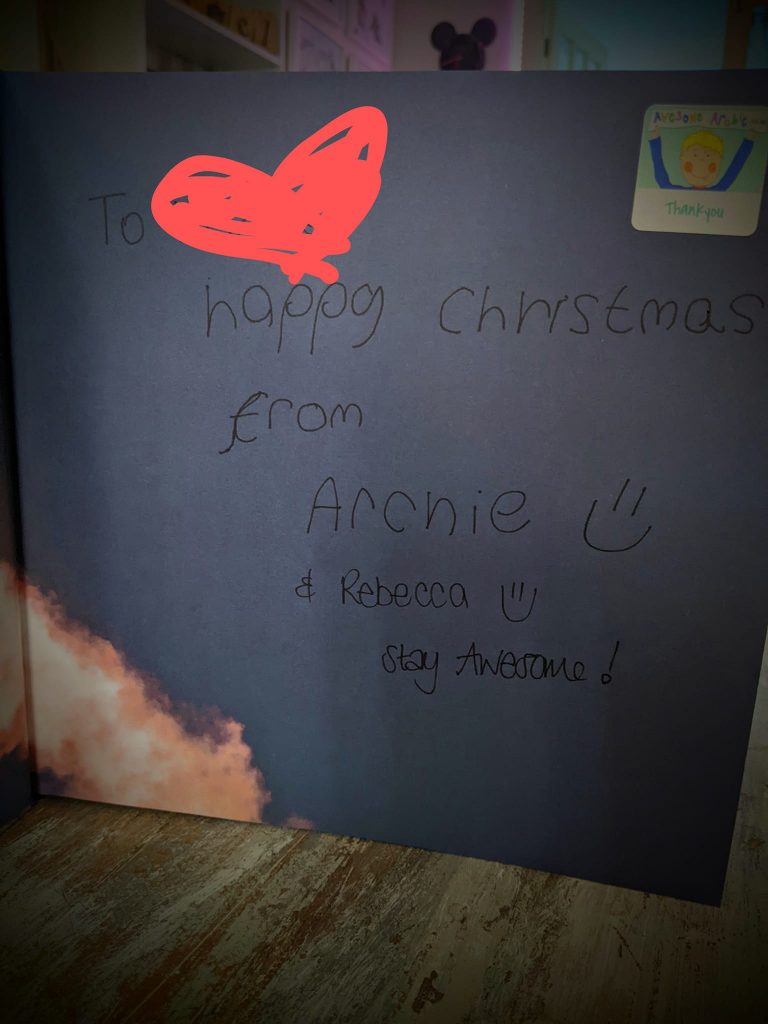 Awesome Archie
Thankyou
To
happy Christmas
from
Archie
& Rebecca
Stay Awesome!